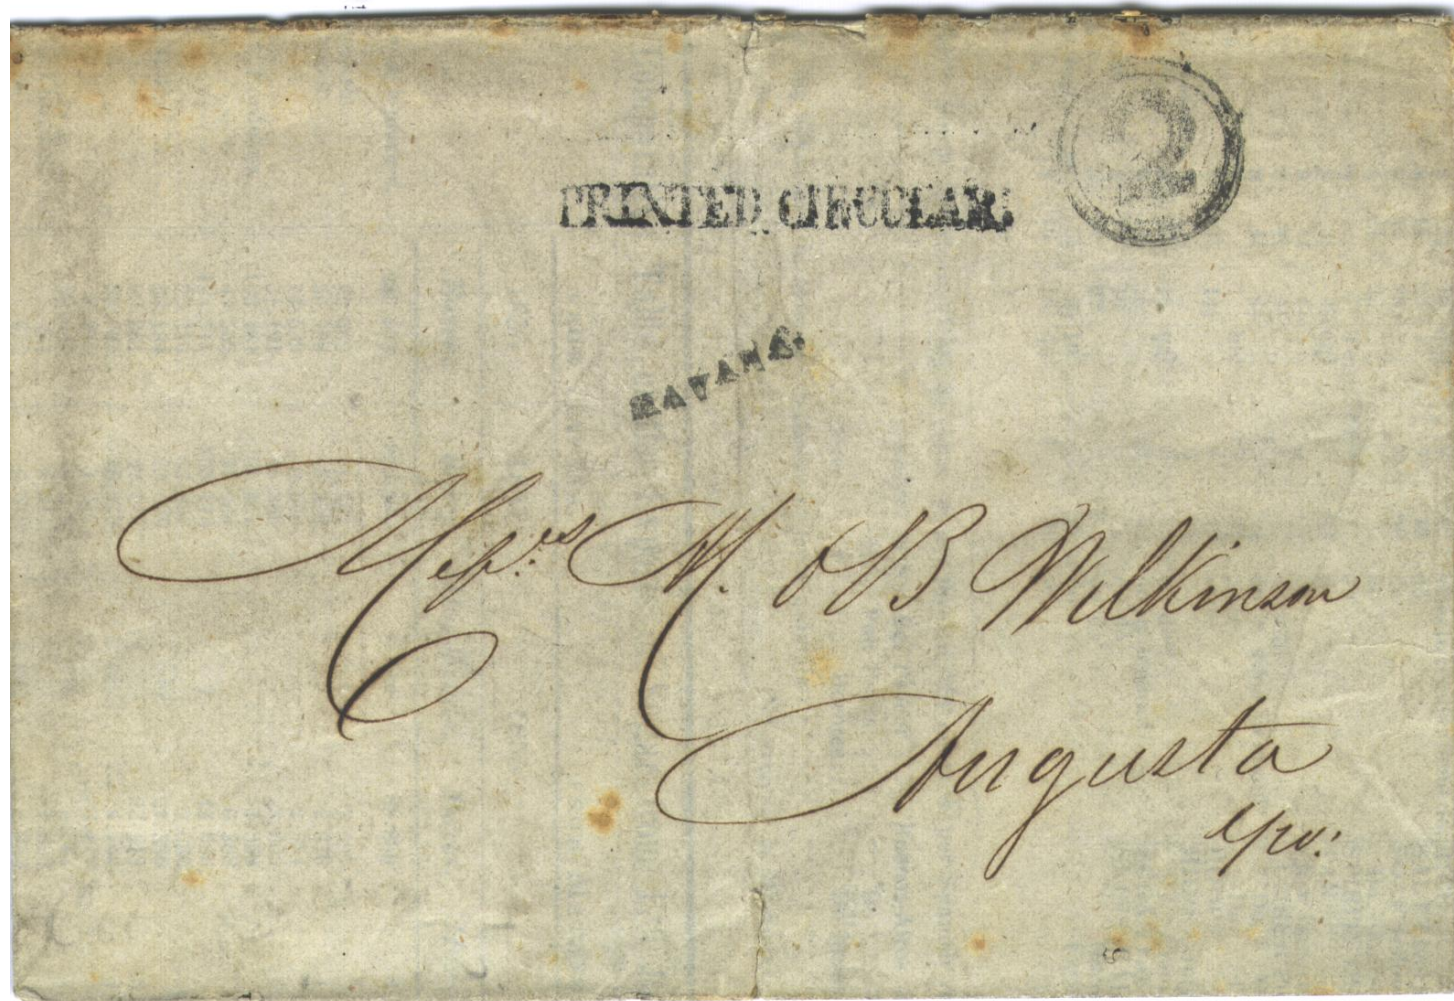 2
PRINTED CIRCULAR.
HAVANA.
Messrs M. & B Wilkinson
Augusta
Geo: